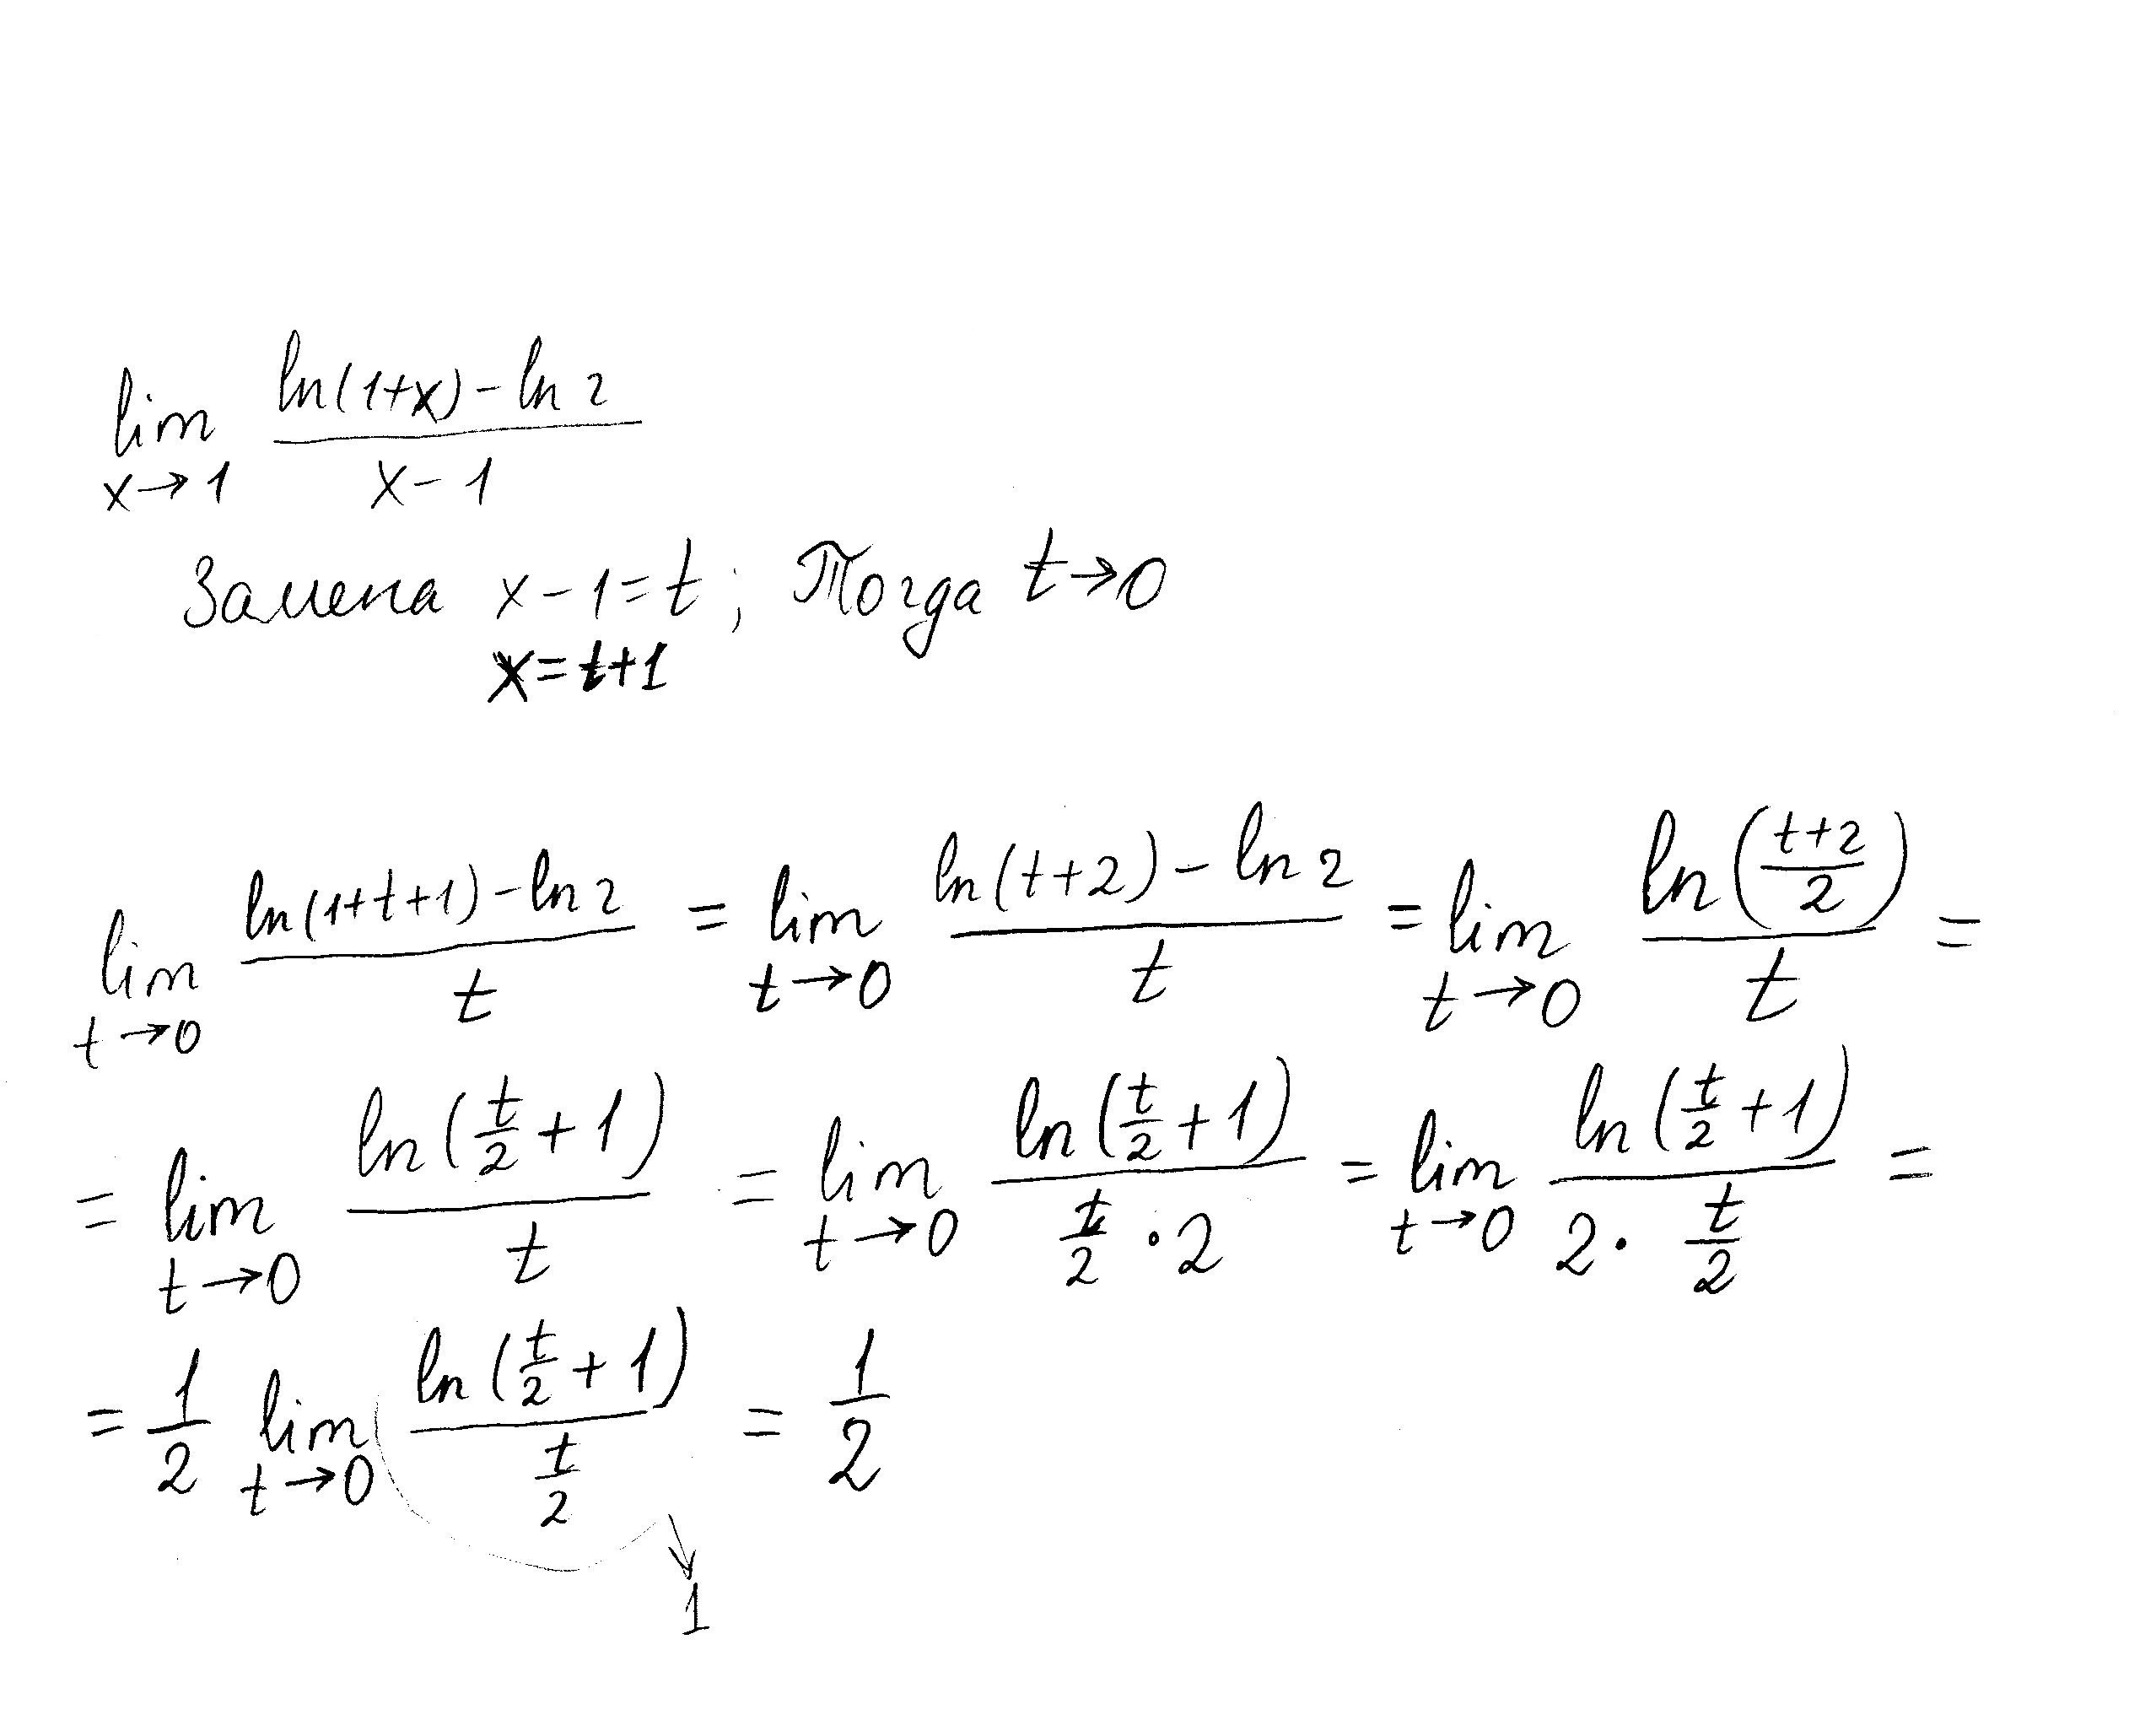 lim x→1 (ln(1+x) - ln 2)/(x - 1)
Замена x - 1 = t; Тогда t→0
x = t+1
lim t→0 (ln(1+t+1) - ln 2)/t = lim t→0 (ln(t+2) - ln 2)/t = lim t→0 ln((t+2)/2)/t =
= lim t→0 ln(t/2 + 1)/t = lim t→0 ln(t/2 + 1)/(t/2 · 2) = lim t→0 ln(t/2 + 1)/(2 · t/2) =
= 1/2 lim t→0 ln(t/2 + 1)/(t/2) = 1/2
1